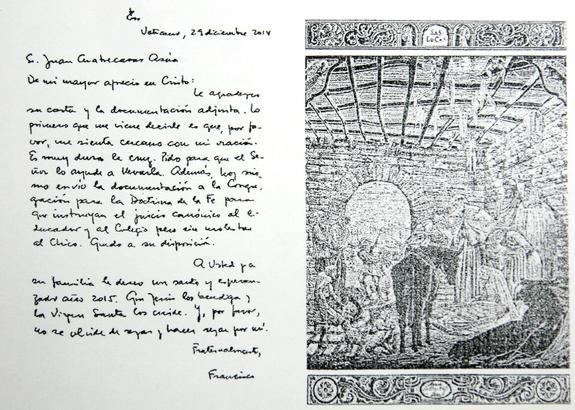 Vaticano, 29 diciembre 2014
S. Juan Cuatrecasas Asúa
De mi mayor aprecio en Cristo:
Le agradezco
su carta y la documentación adjunta. Lo
primero que me viene decirle es que, por fa-
vor, me sienta cercano con mi oración.
Es muy dura la cruz. Pido para que el Se-
ñor lo ayude a llevarla. Además, hoy mis-
mo envío la documentación a la Congre-
gación para la Doctrina de la Fe para
que instruyan el juicio canónico al e-
ducador y al Colegio pero sin molestar
al Chico. Quedo a su disposición.
A Usted y a
su familia le deseo un santo y esperan-
zado año 2015. Que Jesús los bendiga y
la Virgen Santa los cuide. Y, por favor,
no se olvide de rezar y hacer rezar por mí.
Fraternalmente,
Francisco